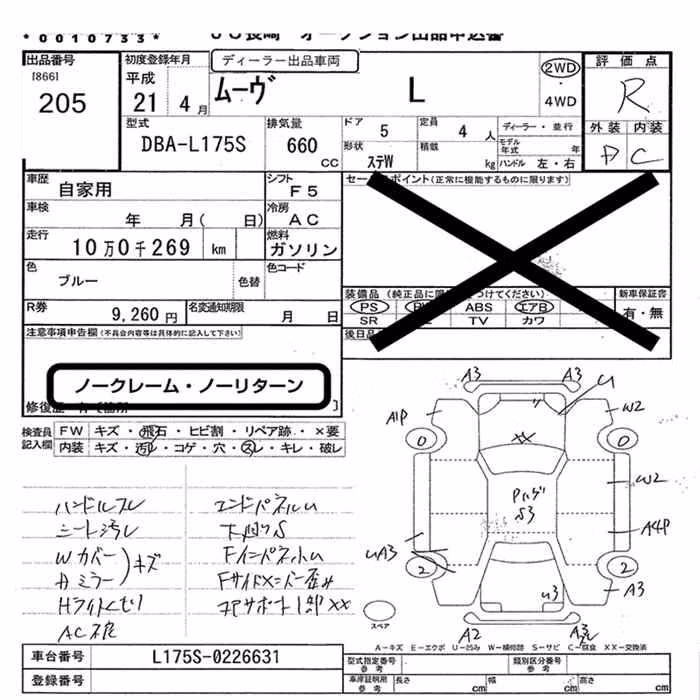 *0010733*
オークション出品申込書
出品番号
[866]
205
初度登録年月
平成
21 4 月
ディーラー出品車両
ムーヴ L
2WD
・
4WD
評価点
R
外装 内装
D C
型式
DBA-L175S
排気量
660 cc
ドア 5
定員 4 人
形状 ステW
積載 kg
ディーラー・並行
モデル年式 年
ハンドル 左・右
車歴
自家用
シフト F5
車検 年 月( 日)
冷房 AC
走行 10万0千269 km
燃料 ガソリン
色 ブルー
色替
色コード
R券 9,260 円
名変通知期限 月 日
セールスポイント(正常に機能するものに限ります)
装備品
PS ABS エアB
SR TV カワ
新車保証書
有・無
後日品
注意事項申告欄(不具合内容等は具体的に記入して下さい)
ノークレーム・ノーリターン
検査員記入欄
FW キズ・飛石・ヒビ割・リペア跡・×要
内装 キズ・汚レ・コゲ・穴・スレ・キレ・破レ
ハンドルスレ
シート汚レ
Wカバー
ミラー
キズ
Hライトくもり
AC不良
エンドパネルU
下廻りS
Fインパネ小U
Fサイドメンバー歪み
コアサポート一部××
A3 A3 U
A1P W2
0 0
××
W2
Pハゲ
S3
A4P
UA3
2 2
A3
U3
A2 A3
スペア
A-キズ E-エクボ U-凹み W-補修跡 S-サビ C-腐食 XX-交換済
車台番号 L175S-0226631
登録番号
型式指定番号 参考
類別区分番号 参考
車庫証明用 参考
長さ cm 幅 cm 高さ cm